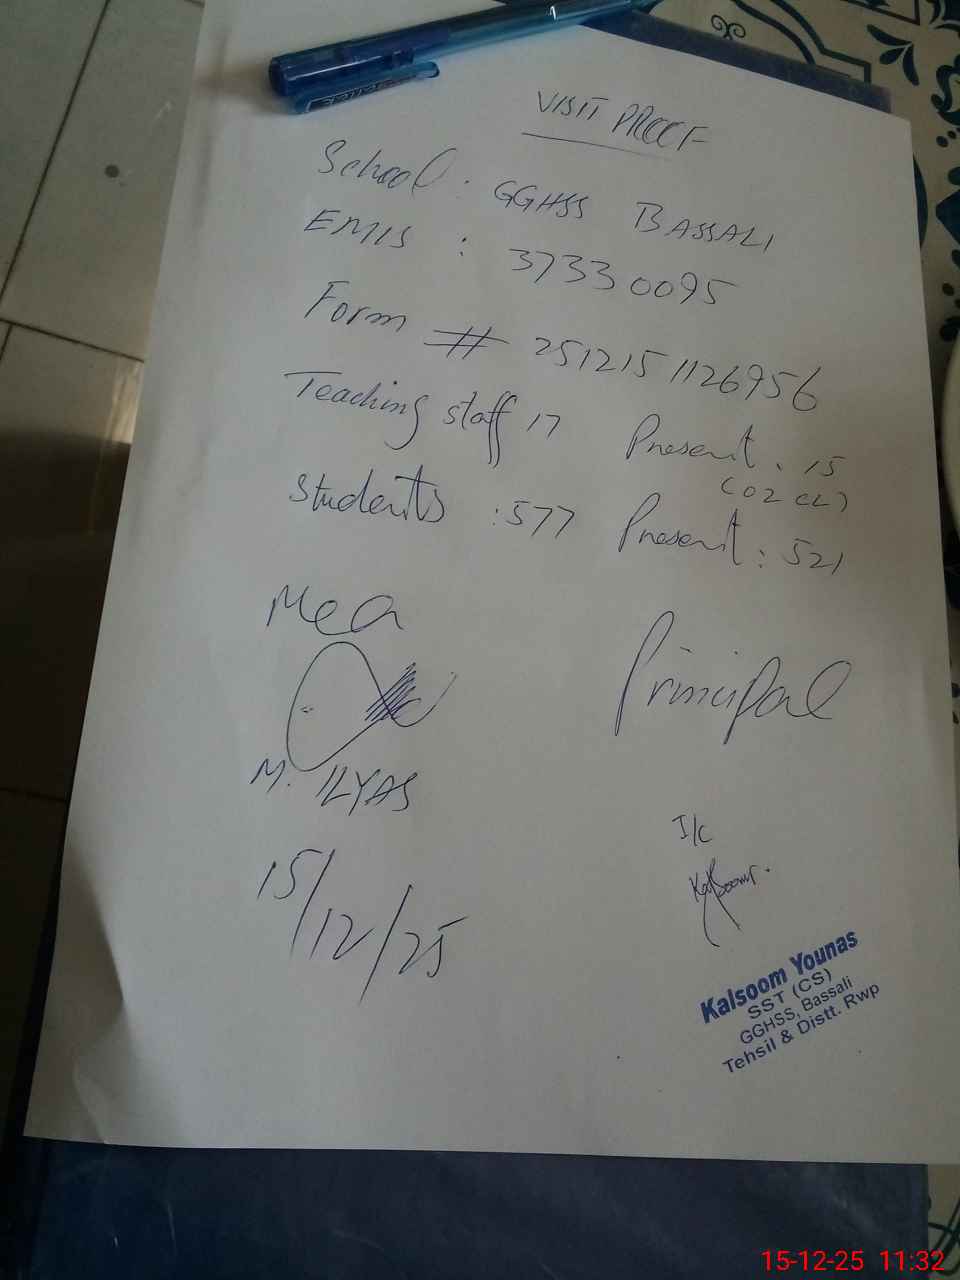 VISIT PROOF
School : GGHSS BASSALI
EMIS : 37330095
Form # 251215 1126956
Teaching staff 17 Present . 15
(02 CL)
Students : 577 Present : 521
MeA
Principal
M. ILYAS
I/C
Kalsoom.
15/12/25
Kalsoom Younas
SST (CS)
GGHSS, Bassali
Tehsil & Distt. Rwp
15-12-25 11:32